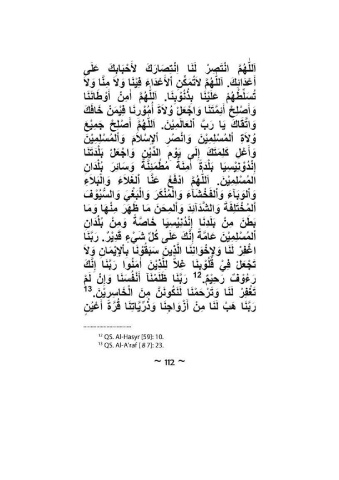 اَللّٰهُمَّ انْتَصِرْ لَنَا اِنْتِصَارَكَ لِأَحْبَابِكَ عَلَى
أَعْدَائِكَ. اَللّٰهُمَّ لَاتُمَكِّنِ الْأَعْدَاءَ فِيْنَا وَلاَ مِنَّا وَلاَ
تُسَلِّطْهُمْ عَلَيْنَا بِذُنُوْبِنَا. اَللّٰهُمَّ آمِنْ أَوْطَانَنَا
وَأَصْلِحْ أَئِمَّتَنَا وَاجْعَلْ وُلاَةَ أُمُوْرِنَا فِيْمَنْ خَافَكَ
وَاتَّقَاكَ يَا رَبَّ الْعَالَمِيْنَ. اَللّٰهُمَّ أَصْلِحْ جَمِيْعَ
وُلاَةِ الْمُسْلِمِيْنَ وَانْصُرِ الْإِسْلاَمَ وَالْمُسْلِمِيْنَ
وَأَعْلِ كَلِمَتَكَ إِلَى يَوْمِ الدِّيْنِ وَاجْعَلْ بَلْدَتَنَا
إِنْدُوْنِيْسِيَا بَلْدَةً آمِنَةً مُطْمَئِنَّةً وَسَائِرَ بُلْدَانِ
الْمُسْلِمِيْنَ. اَللّٰهُمَّ ادْفَعْ عَنَّا الْغَلاَءَ وَالْبَلاَءَ
وَالْوَبَاءَ وَالْفَحْشَاءَ وَالْمُنْكَرَ وَالْبَغْيَ وَالسُّيُوْفَ
الْمُخْتَلِفَةَ وَالشَّدَائِدَ وَالْمِحَنَ مَا ظَهَرَ مِنْهَا وَمَا
بَطَنَ مِنْ بَلَدِنَا إِنْدُنِيْسِيَا خَاصَّةً وَمِنْ بُلْدَانِ
الْمُسْلِمِيْنَ عَامَّةً إِنَّكَ عَلَى كُلِّ شَيْءٍ قَدِيْرٌ. رَبَّنَا
اغْفِرْ لَنَا وَلِإِخْوَانِنَا الَّذِيْنَ سَبَقُوْنَا بِالْإِيْمَانِ وَلاَ
تَجْعَلْ فِيْ قُلُوْبِنَا غِلاًّ لِلَّذِيْنَ آمَنُوْا رَبَّنَا إِنَّكَ
رَءُوْفٌ رَحِيْمٌ.12 رَبَّنَا ظَلَمْنَا أَنْفُسَنَا وَإِنْ لَمْ
تَغْفِرْ لَنَا وَتَرْحَمْنَا لَنَكُوْنَنَّ مِنَ الْخَاسِرِيْنَ.13
رَبَّنَا هَبْ لَنَا مِنْ أَزْوَاجِنَا وَذُرِّيَّاتِنَا قُرَّةَ أَعْيُنٍ
12 QS. Al-Hasyr [59]: 10.
13 QS. Al-A'raf [ 8 7]: 23.
~ 112 ~